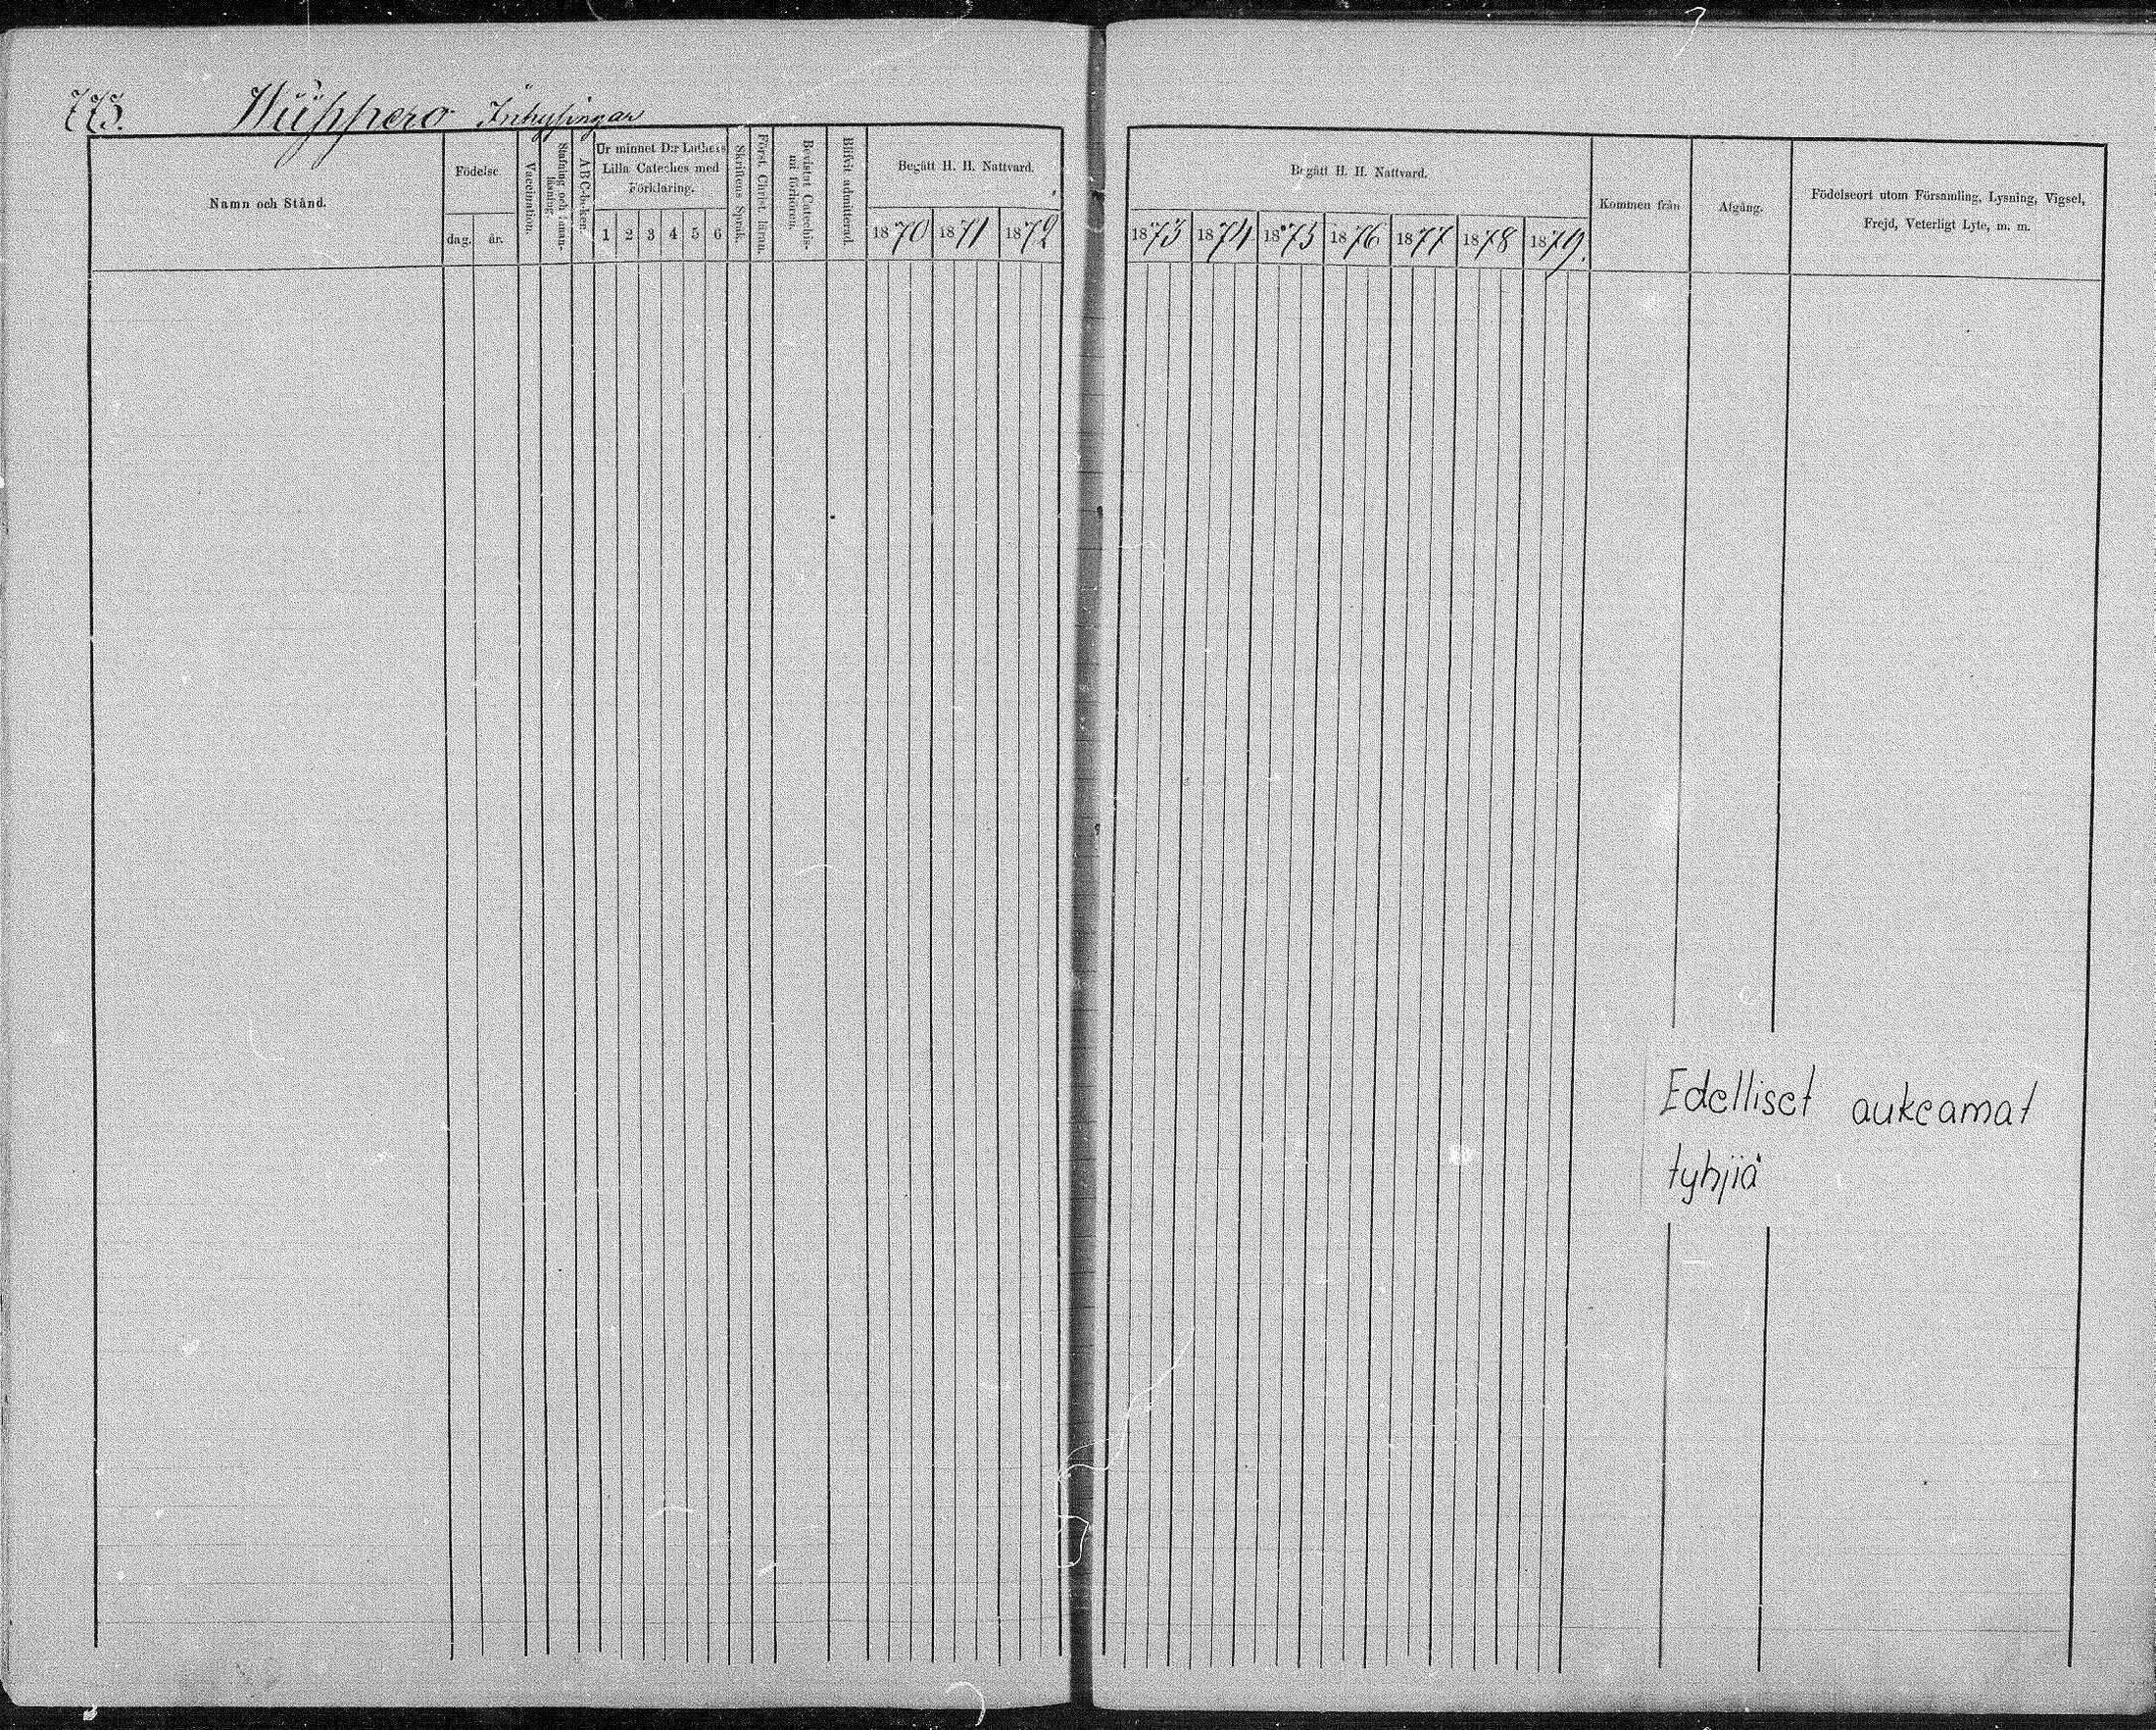 775. Inhysingar
Namn och Stånd.
Födelse
dag. år.
Vaccination.
Stafning och innan-
läsning.
ABC-boken.
Ur minnet D:r Luthers
Lilla Cateches med
Förklaring.
1 2 3 4 5 6
Skriftens Språk.
Först. Christ. läran.
Bevistat Catechis-
mi förhören.
Blifvit admitterad.
Begått H. H. Nattvard.
1870 1871 1872
Begått H. H. Nattvard.
1873 1874 1875 1876 1877 1878 1879.
Kommen från
Afgång.
Födelseort utom Församling, Lysning, Vigsel,
Frejd, Veterligt Lyte, m. m.
Edelliset aukeamat
tyhjiä